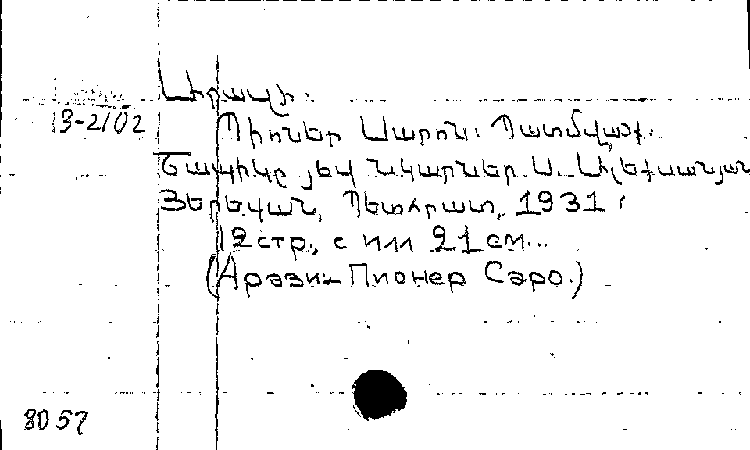 13-2102
Պիոներ Սարոն: Պատմվածք.
Շապիկը յեվ նկարները Ա. Ալեքսանյան
Յերեվան, Պետհրատ, 1931:
12 стр., с илл 21 см...
(Арази- Пионер Саро.)
8057